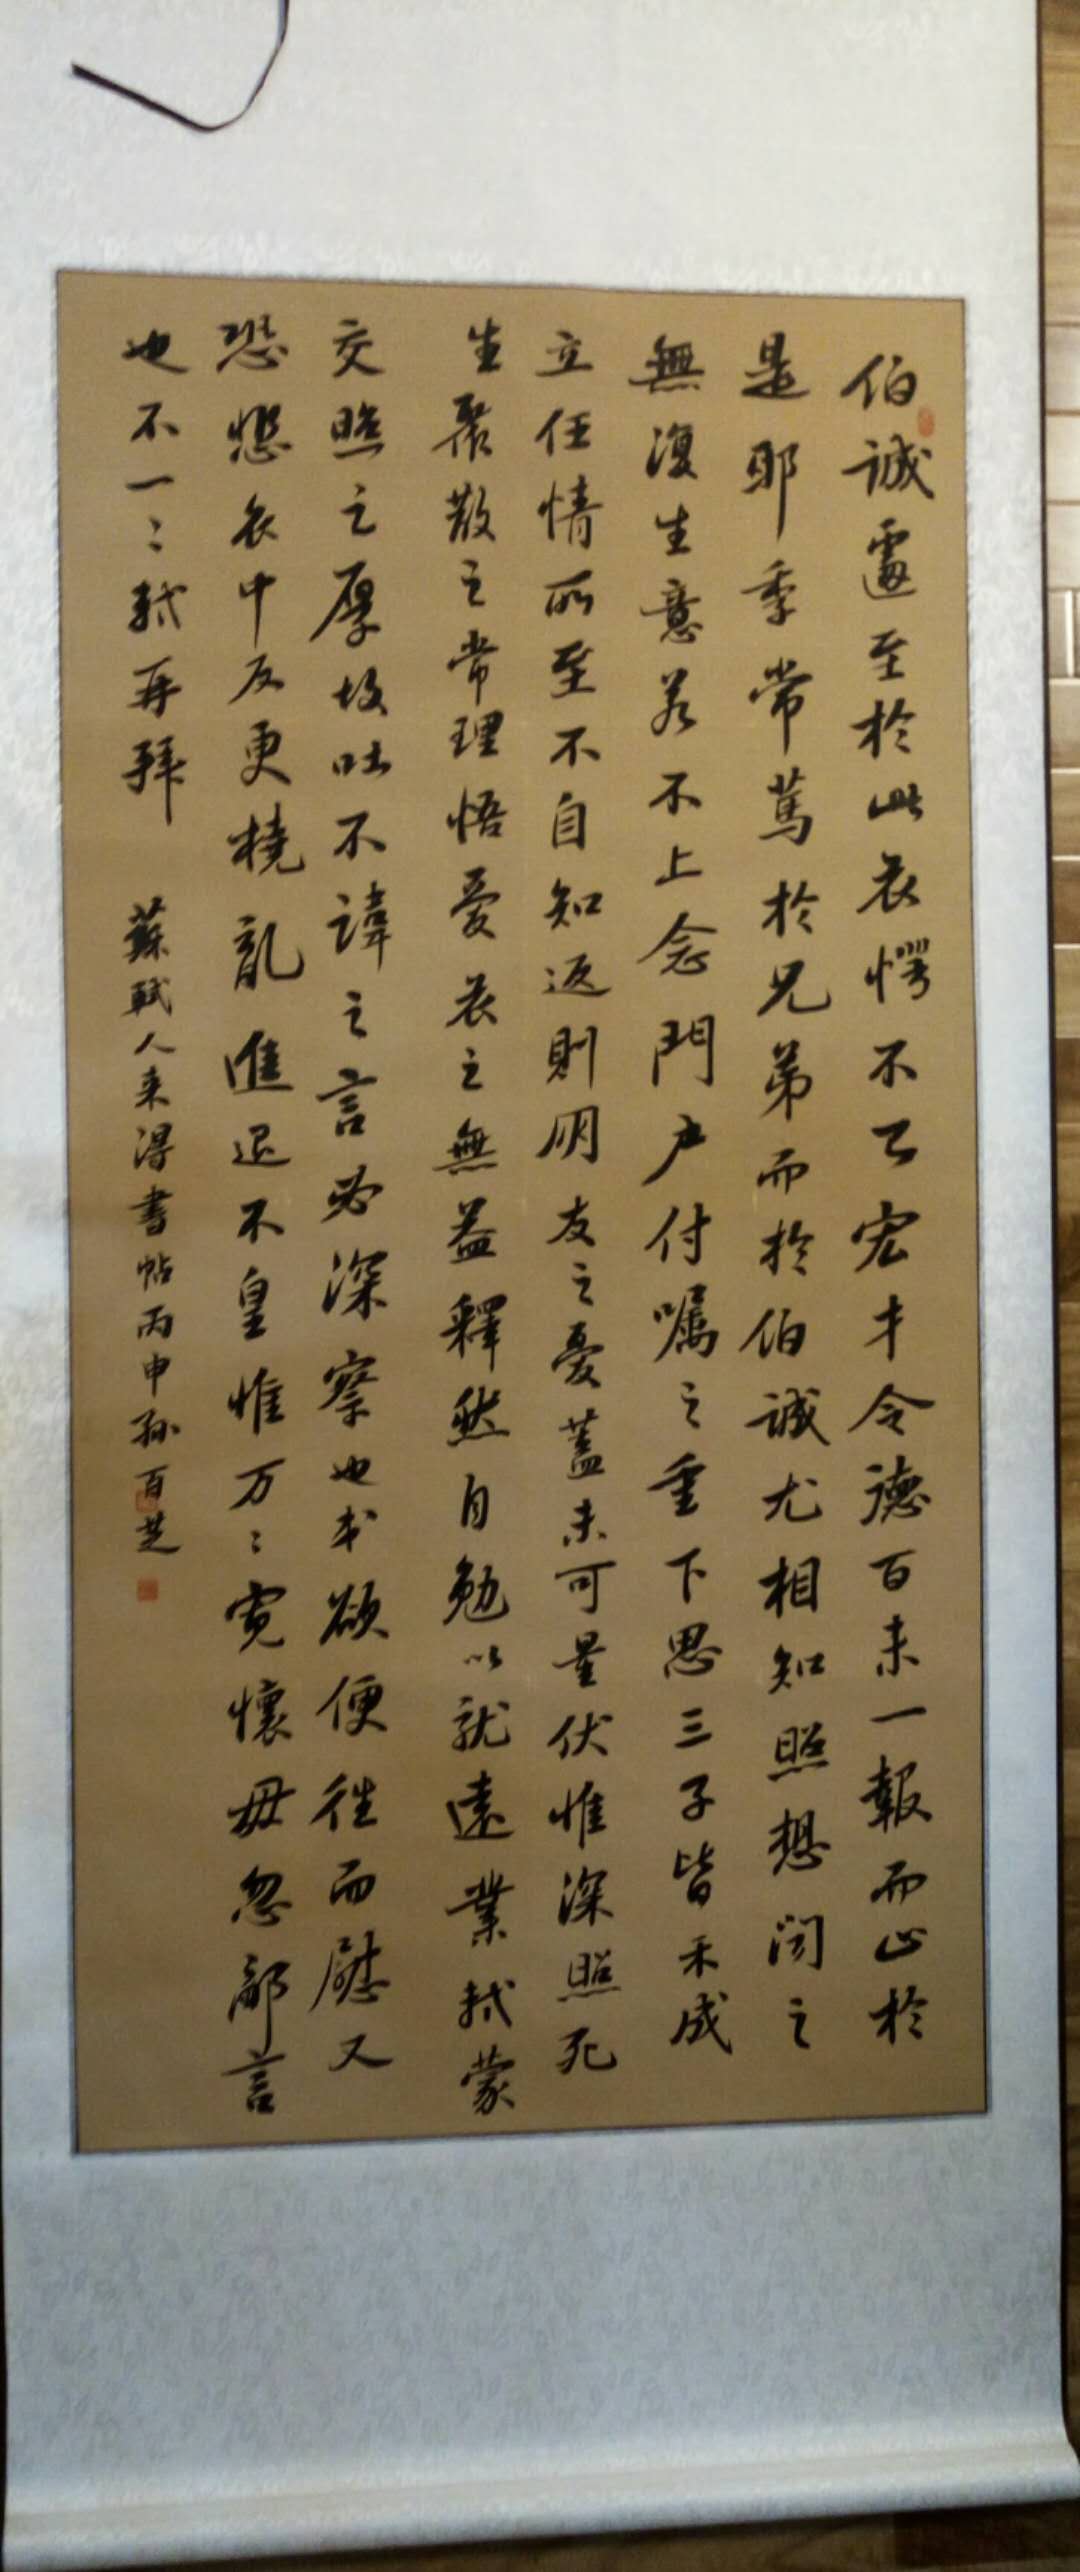 伯誠遽至於此哀愕不已宏才令德百未一報而止於
是耶季常篤於兄弟而於伯誠尤相知照想聞之
無復生意若不上念門户付嘱之重下思三子皆未成
立任情所至不自知返則朋友之憂蓋未可量伏惟深照死
生聚散之常理悟憂哀之無益釋然自勉以就遠業軾蒙
交照之厚故吐不諱之言必深察也本欲便往面慰又
恐悲哀中反更撓亂進退不皇惟万〻寬懷毋忽鄙言
也不一〻軾再拜 蘇軾人来得書帖丙申孫百芝